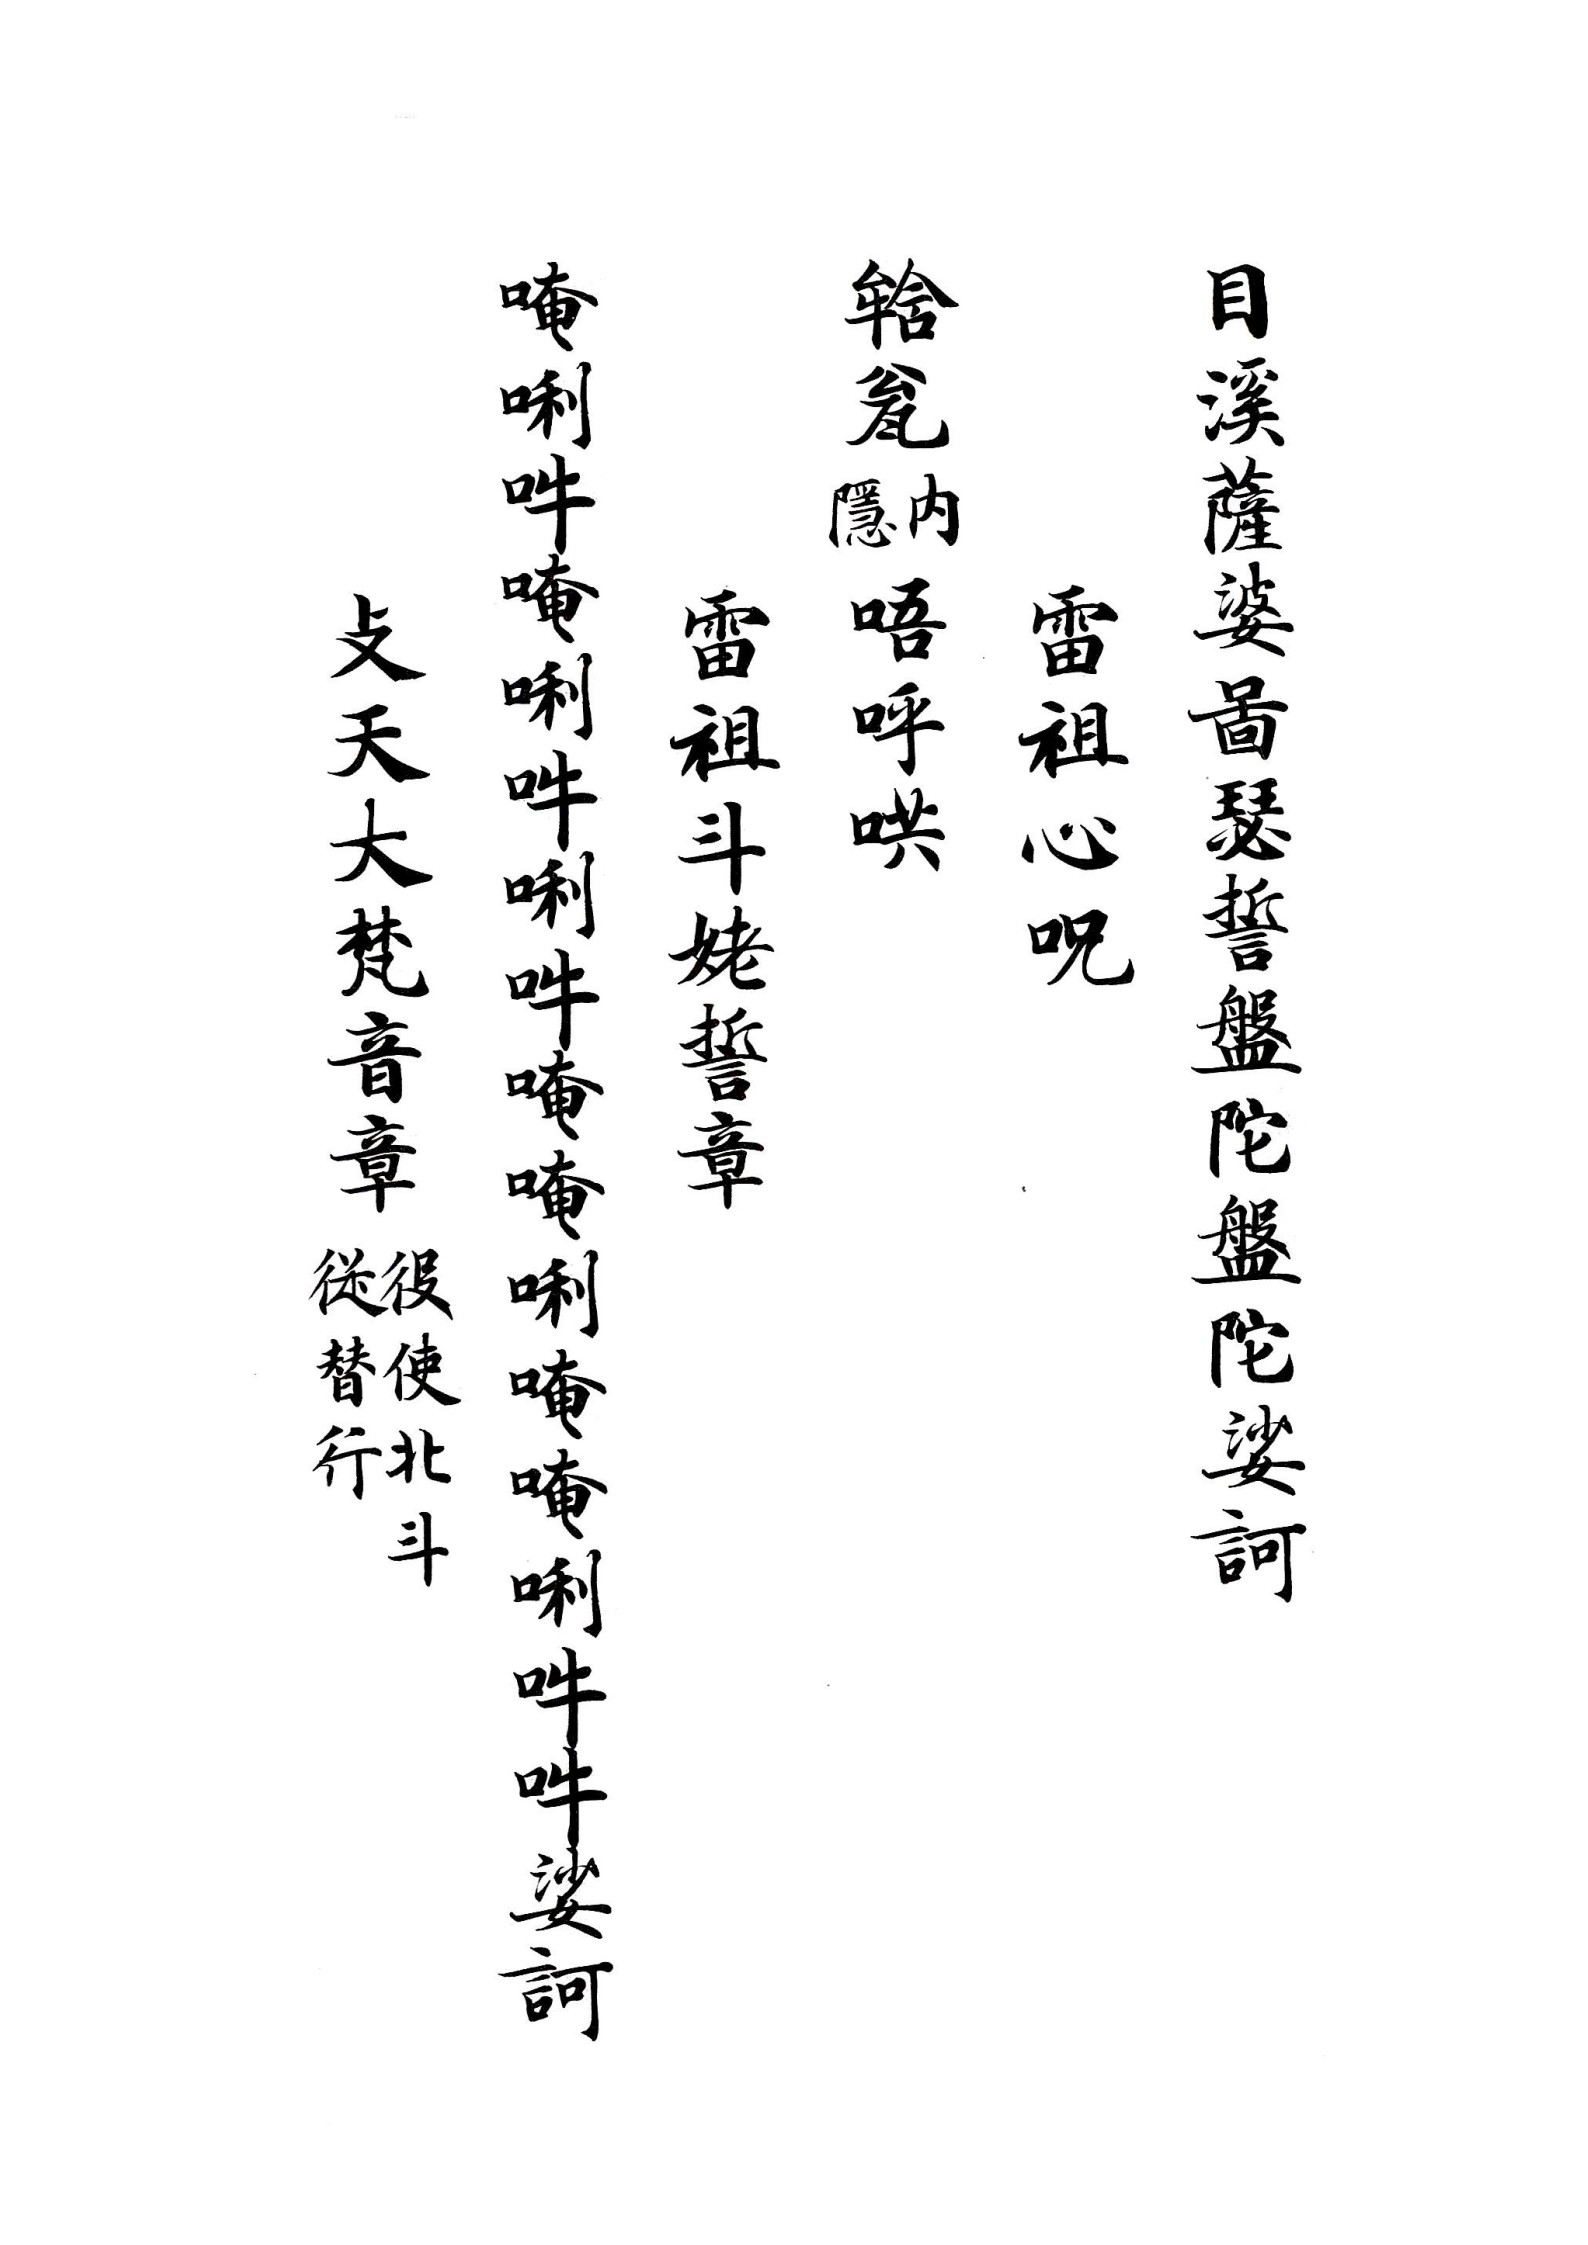 目溪薩婆啚瑟誓盤陀盤陀娑訶
雷祖心呪
內隱唔呼哄
雷祖斗姥誓章
唵唎吽唵唎吽唎吽唵唵唎唵唵唎吽吽娑訶
天大梵音章
役使北斗
從替行